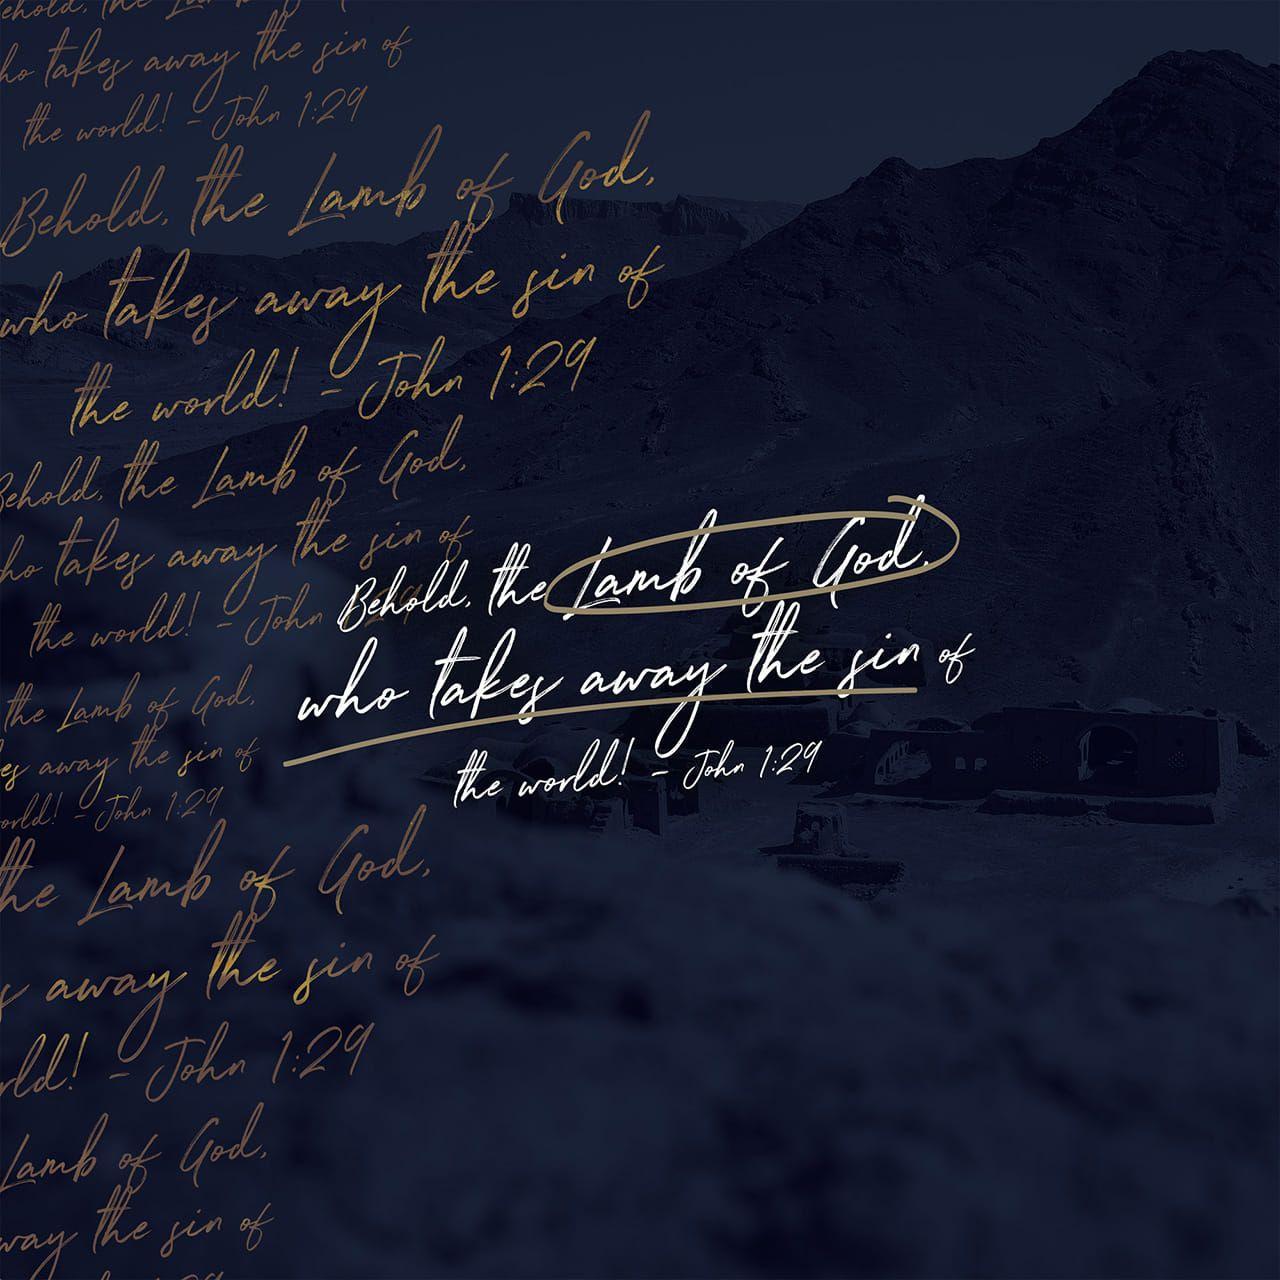 ehold, the Lamb of God,
ho takes away the sin of
the world! – John 1:29
Behold, the Lamb of God,
who takes away the sin of
the world! – John 1:29
Behold, the Lamb of God,
ho takes away the sin of
the world! – John 1:29
Behold, the Lamb of God,
who takes away the sin of
the world! – John 1:29
the Lamb of God,
es away the sin of
orld! – John 1:29
the Lamb of God,
s away the sin of
rld! – John 1:29
Lamb of God,
way the sin of
John 1:29